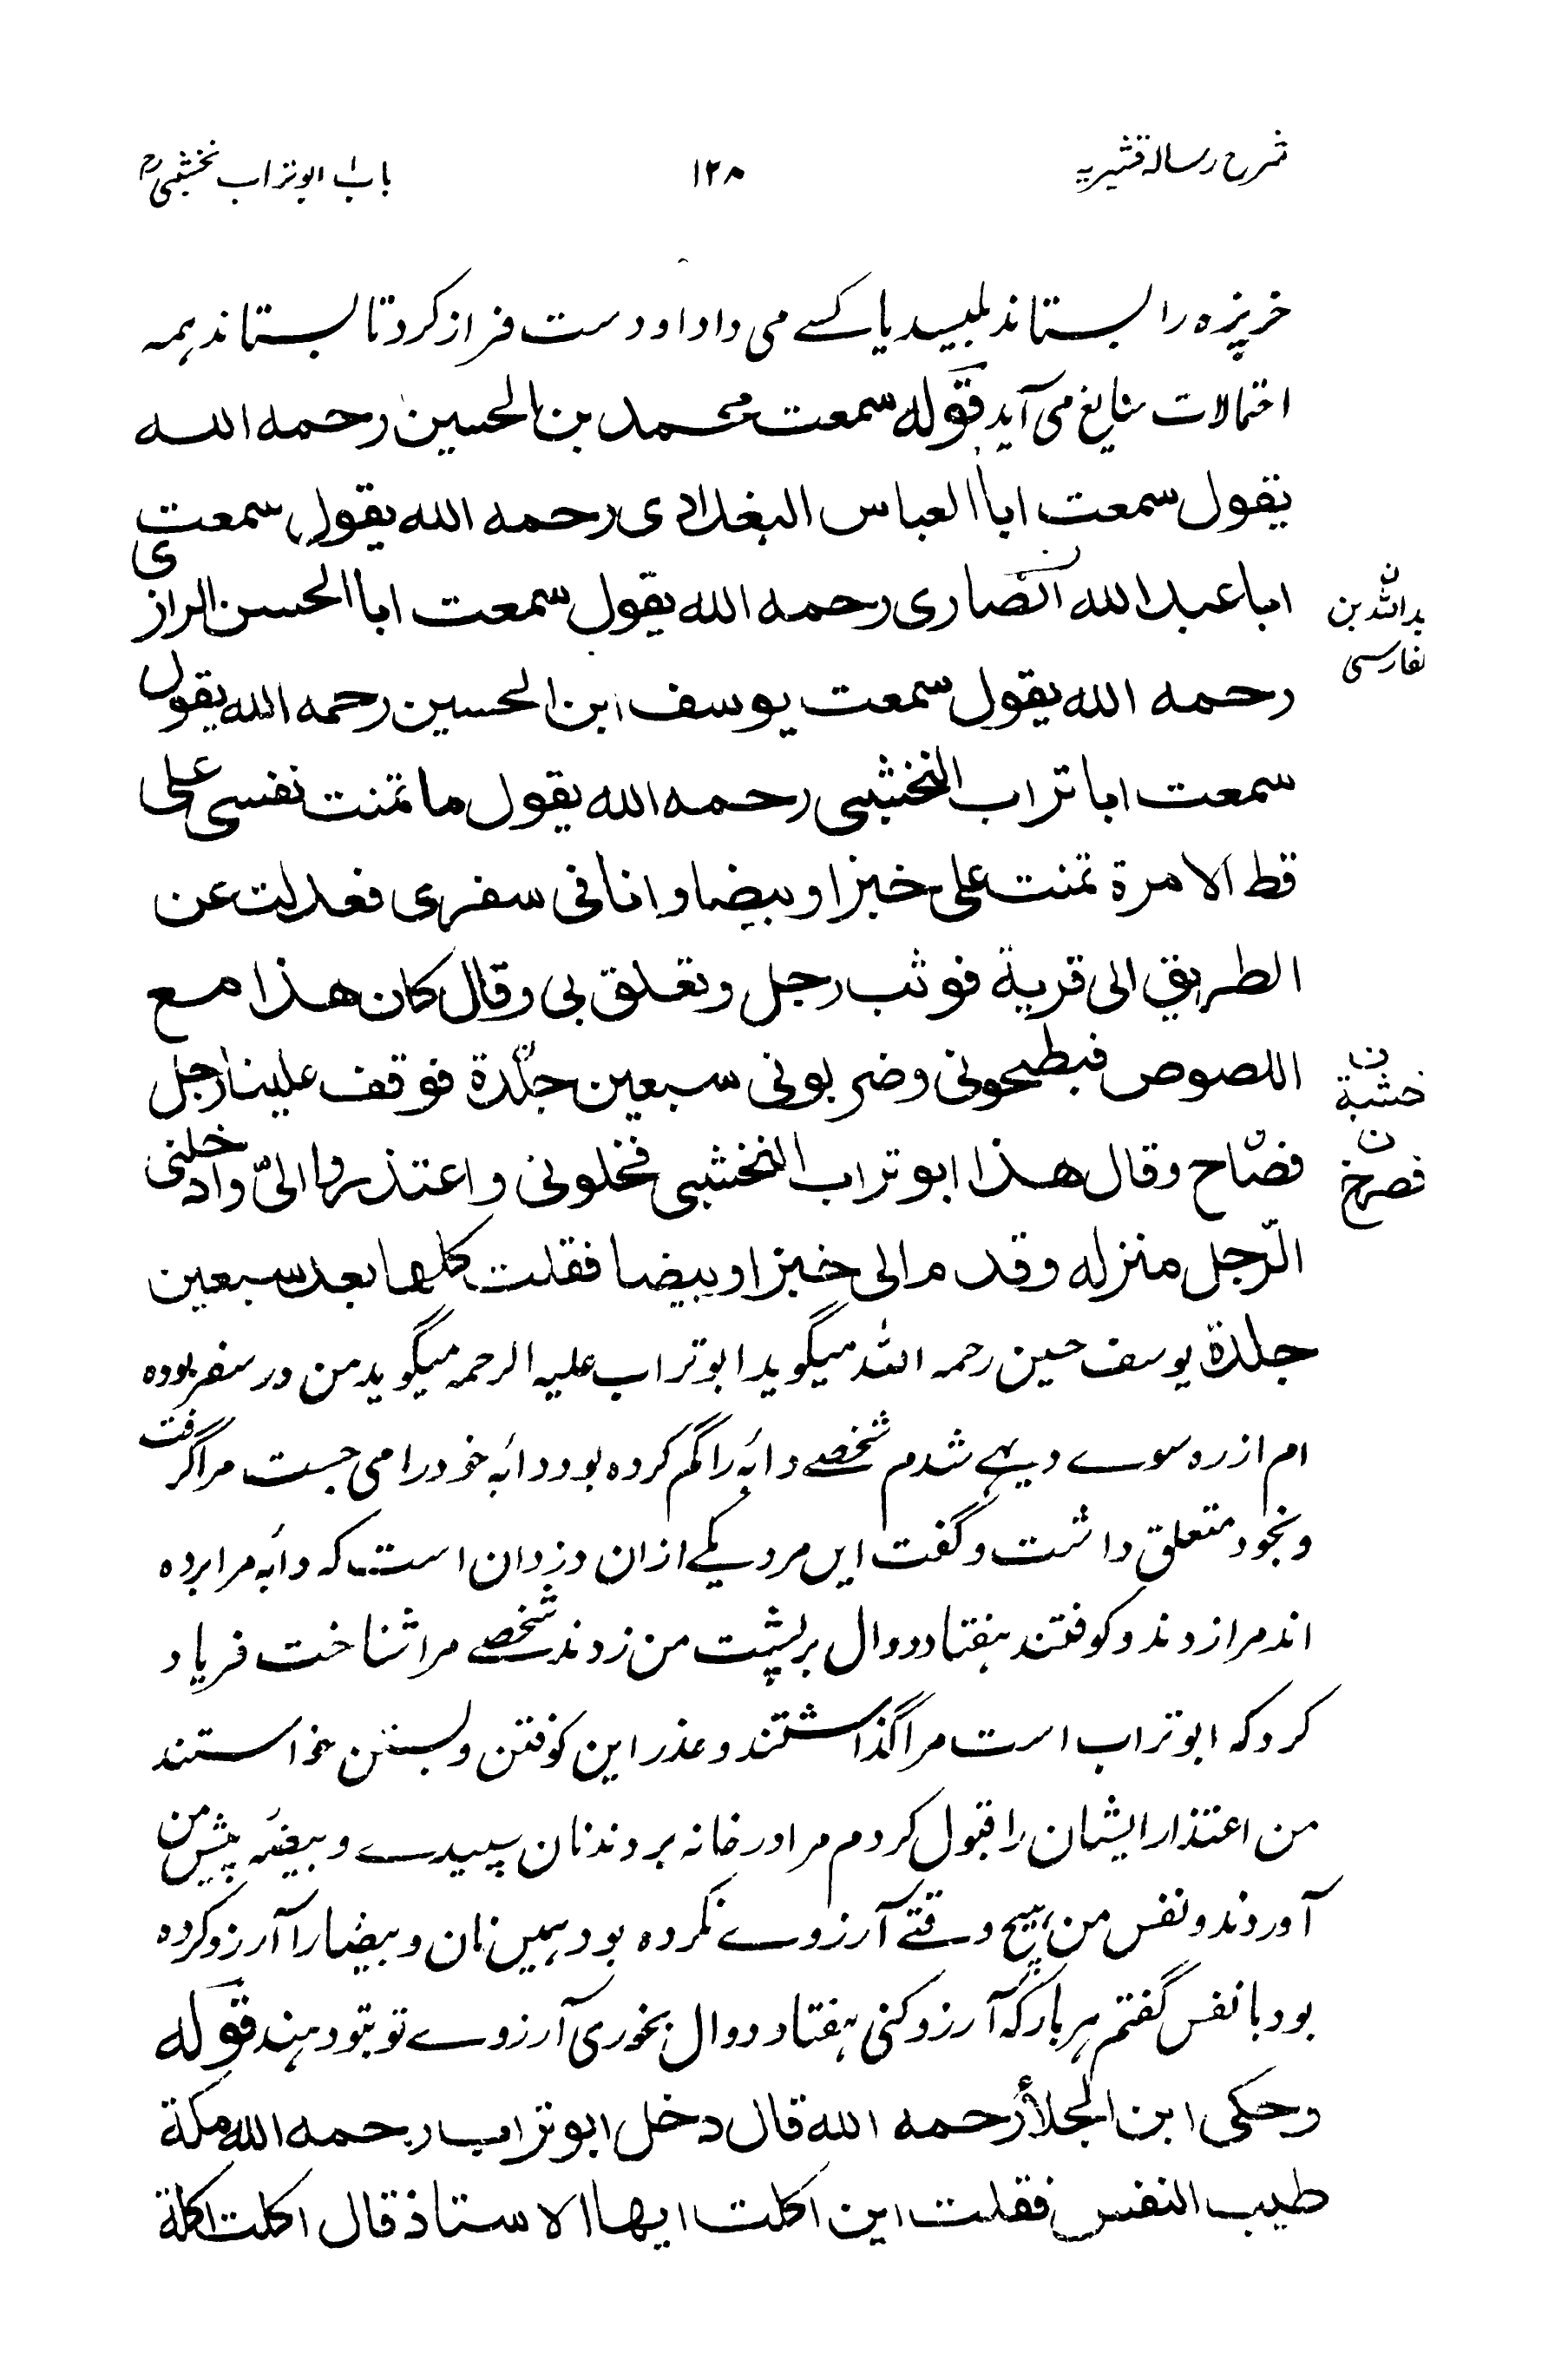 شرح رسالہ قشیریہ ۱۲۸ باب ابو تراب نخشبی رح
خرپزہ را بستاند بلیسد یا کسے می داد او دست فراز کرد تا بستاند ہمہ
احتمالات شایع می آید قوله سمعت محمد بن الحسین رحمه الله
یقول سمعت ابا العباس البغدادی رحمه الله یقول سمعت
ابا عبد الله انصاری رحمه الله یقول سمعت ابا الحسن الرازی
ن
بد اللہ بن
لفارسی
رحمه الله یقول سمعت یوسف ابن الحسین رحمه الله یقول
سمعت ابا تراب النخشبی رحمه الله یقول ما تمنت نفسی علی
قط الا مرة تمنت علی خبزا و بیضا وانا فی سفری فعدلت عن
الطریق الی قریة فوثب رجل وتعلق بی وقال کان هذا مع
اللصوص فبطحونی وضربونی سبعین جلدة فوقف علینا رجل
ن
خشبة
فصاح وقال هذا ابو تراب النخشبی فخلونی واعتذروا الیّ وادخلنی
ن
فصرخ
الرّجل منزله وقدم الی خبزا وبیضا فقلت کلها بعد سبعین
جلدة یوسف حسین رحمہ اللہ میگوید ابو تراب علیہ الرحمہ میگوید من در سفر بوده
ام از رہ سوے دیہے شدم شخصے دابہٴ را گم کردہ بود دابہٴ خود را می جست مرا گرفت
و بخود متعلق داشت و گفت ایں مرد یکے ازان دزدان است کہ دابہٴ مرا بردہ
اند مرا زدند و کوفتند ہفتاد دوال بر پشت من زدند شخصے مرا شناخت فریاد
کرد کہ ابو تراب است مرا گذاشتند و عذر این کوفتن و بستن خواستند
من اعتذار ایشان را قبول کردم مرا در خانہ بردند نان سپیدے و بیضہٴ پیش من
آوردند و نفس من ہیچ وقتے آرزوے نکردہ بود ہمیں نان و بیضہ را آرزو کردہ
بود با نفس گفتم ہر بار کہ آرزو کنی ہفتاد دوال بخوری آرزوے تو بتو دہند قوله
وحکی ابن الجلأ رحمه الله قال دخل ابو تراب رحمه الله مکة
طیب النفس فقلت این اکلت ایها الاستاذ قال اکلت اکلة